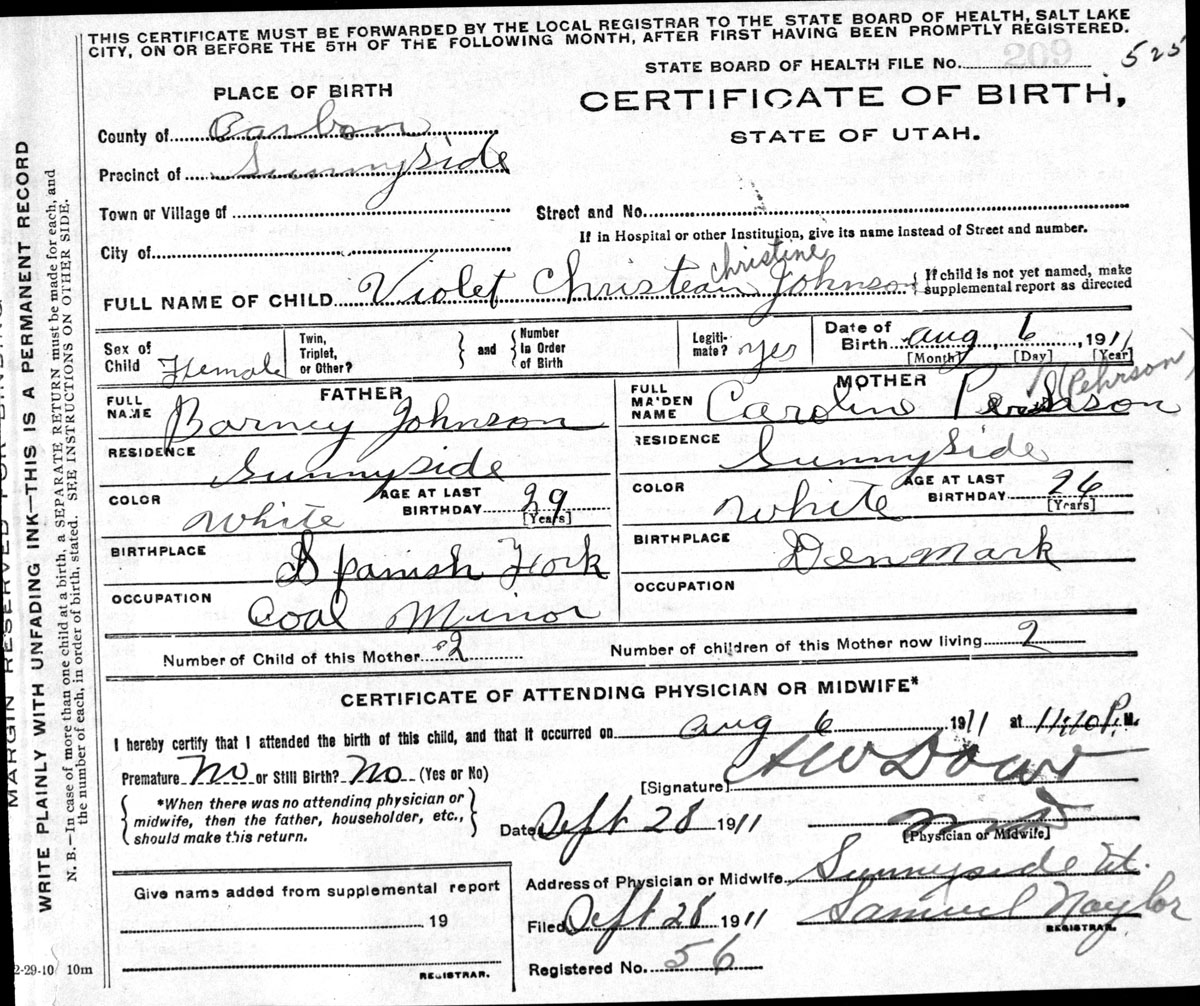 THIS CERTIFICATE MUST BE FORWARDED BY THE LOCAL REGISTRAR TO THE STATE BOARD OF HEALTH, SALT LAKE
CITY, ON OR BEFORE THE 5TH OF THE FOLLOWING MONTH, AFTER FIRST HAVING BEEN PROMPTLY REGISTERED.
STATE BOARD OF HEALTH FILE No. 209 525
PLACE OF BIRTH
CERTIFICATE OF BIRTH,
STATE OF UTAH.
County of Carbon
Precinct of Sunnyside
Town or Village of
Street and No.
If in Hospital or other Institution, give its name instead of Street and number.
City of
christine
FULL NAME OF CHILD Violet Christean Johnson { If child is not yet named, make
supplemental report as directed
Sex of
Child Female
Twin,
Triplet,
or Other?
} and {
Number
in Order
of Birth
Legiti-
mate? yes
Date of
Birth aug 6, 1911
[Month] [Day] [Year]
FATHER
FULL
NAME Barney Johnson
RESIDENCE Sunnyside
COLOR White
AGE AT LAST
BIRTHDAY 29
[Years]
BIRTHPLACE Spanish Fork
OCCUPATION Coal Minor
MOTHER
FULL
MAIDEN
NAME Caroline (Pehrson)
RESIDENCE Sunnyside
COLOR White
AGE AT LAST
BIRTHDAY 26
[Years]
BIRTHPLACE Denmark
OCCUPATION
Number of Child of this Mother 2
Number of children of this Mother now living 2
CERTIFICATE OF ATTENDING PHYSICIAN OR MIDWIFE*
I hereby certify that I attended the birth of this child, and that it occurred on aug 6 1911 at 11:10 P. M.
Premature No or Still Birth? No (Yes or No)
{ *When there was no attending physician or
midwife, then the father, householder, etc.,
should make this return. }
[Signature] A W Dowd
Date Sept 28 1911
M D
[Physician or Midwife]
Give name added from supplemental report
19
REGISTRAR.
Address of Physician or Midwife Sunnyside Ut.
Filed Sept 28 1911 Samuel Naylor
REGISTRAR.
Registered No. 56
2-29-10 10m
MARGIN RESERVED FOR BINDING
WRITE PLAINLY WITH UNFADING INK—THIS IS A PERMANENT RECORD
N. B.—In case of more than one child at a birth, a SEPARATE RETURN must be made for each, and
the number of each, in order of birth, stated. SEE INSTRUCTIONS ON OTHER SIDE.